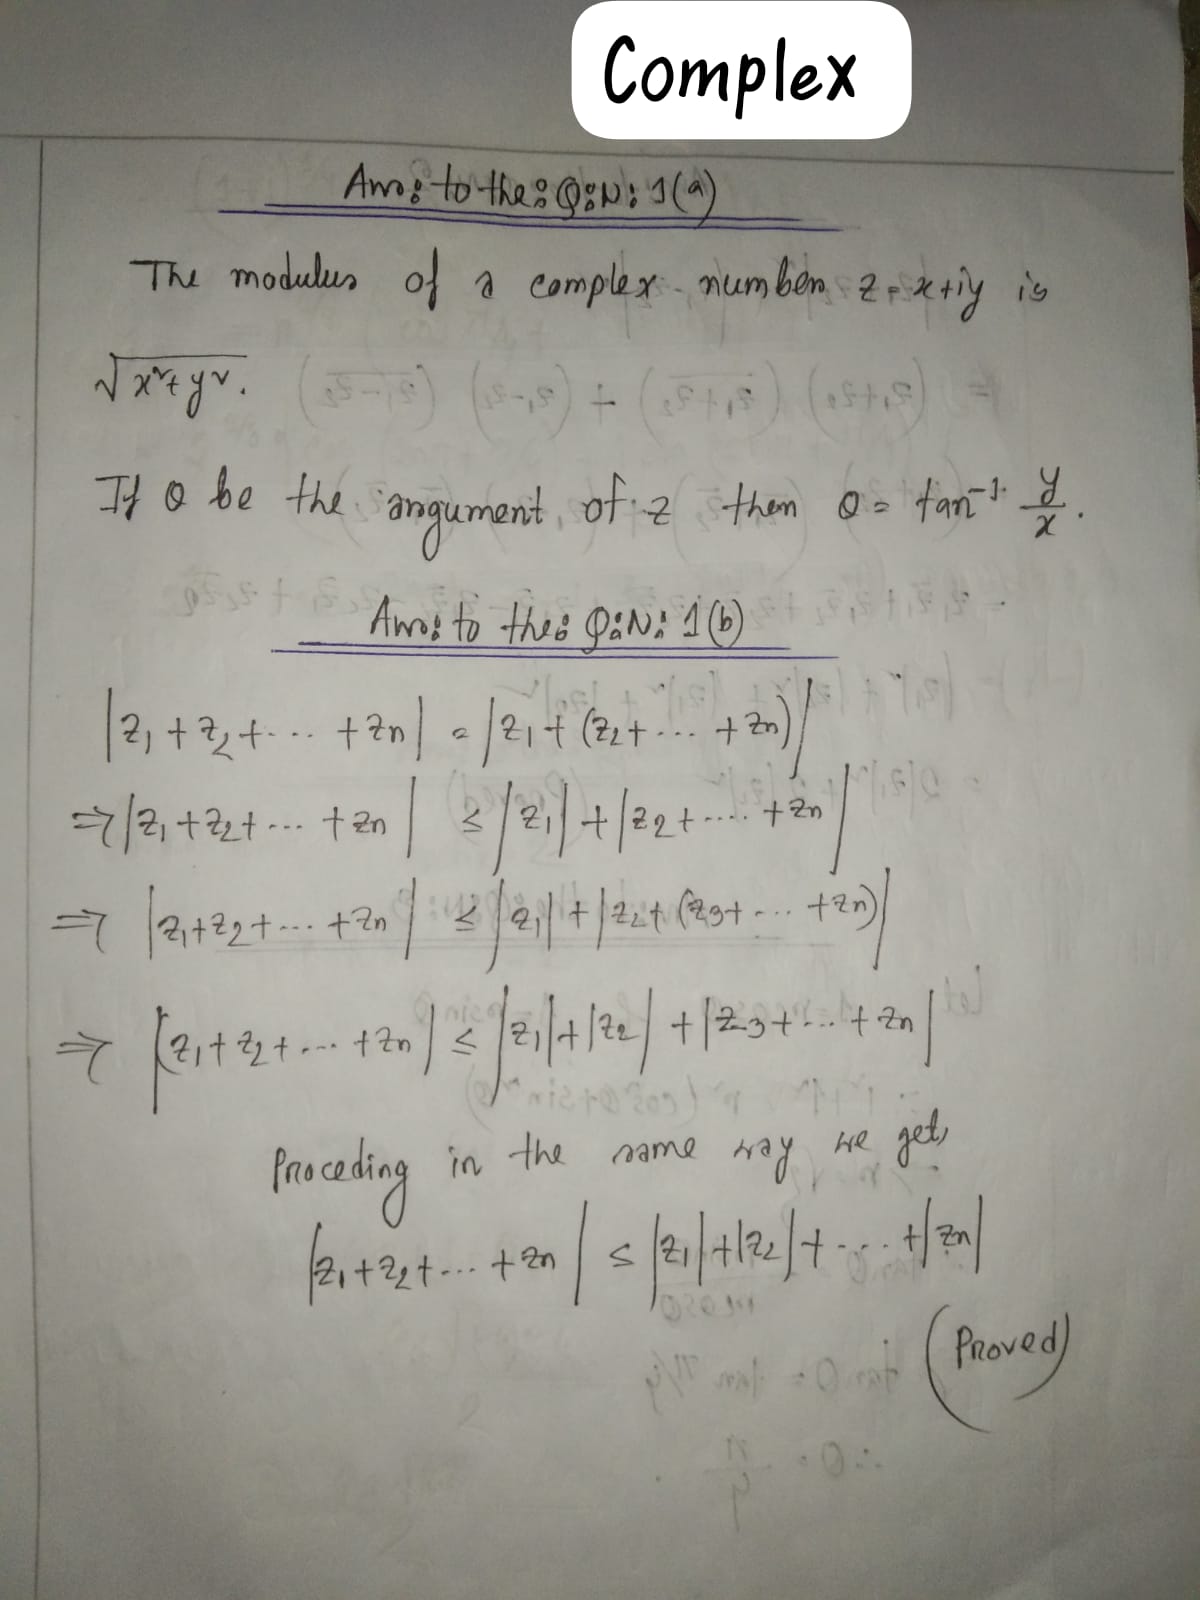 Complex
Ans: to the: Q:N: 1(a)
The modulus of a complex number z = x+iy is
√x²+y².
If θ be the argument of z then θ = tan⁻¹ y/x.
Ans: to the: Q:N: 1(b)
|z₁+z₂+... +zn| = |z₁+(z₂+... +zn)|
⇒|z₁+z₂+... +zn| ≤ |z₁|+|z₂+.... +zn|
⇒ |z₁+z₂+... +zn| ≤ |z₁|+|z₂+(z₃+... +zn)|
⇒ |z₁+z₂+... +zn| ≤ |z₁|+|z₂|+|z₃+...+zn|
Proceding in the same way we get,
|z₁+z₂+... +zn| ≤ |z₁|+|z₂|+... +|zn|
(Proved)